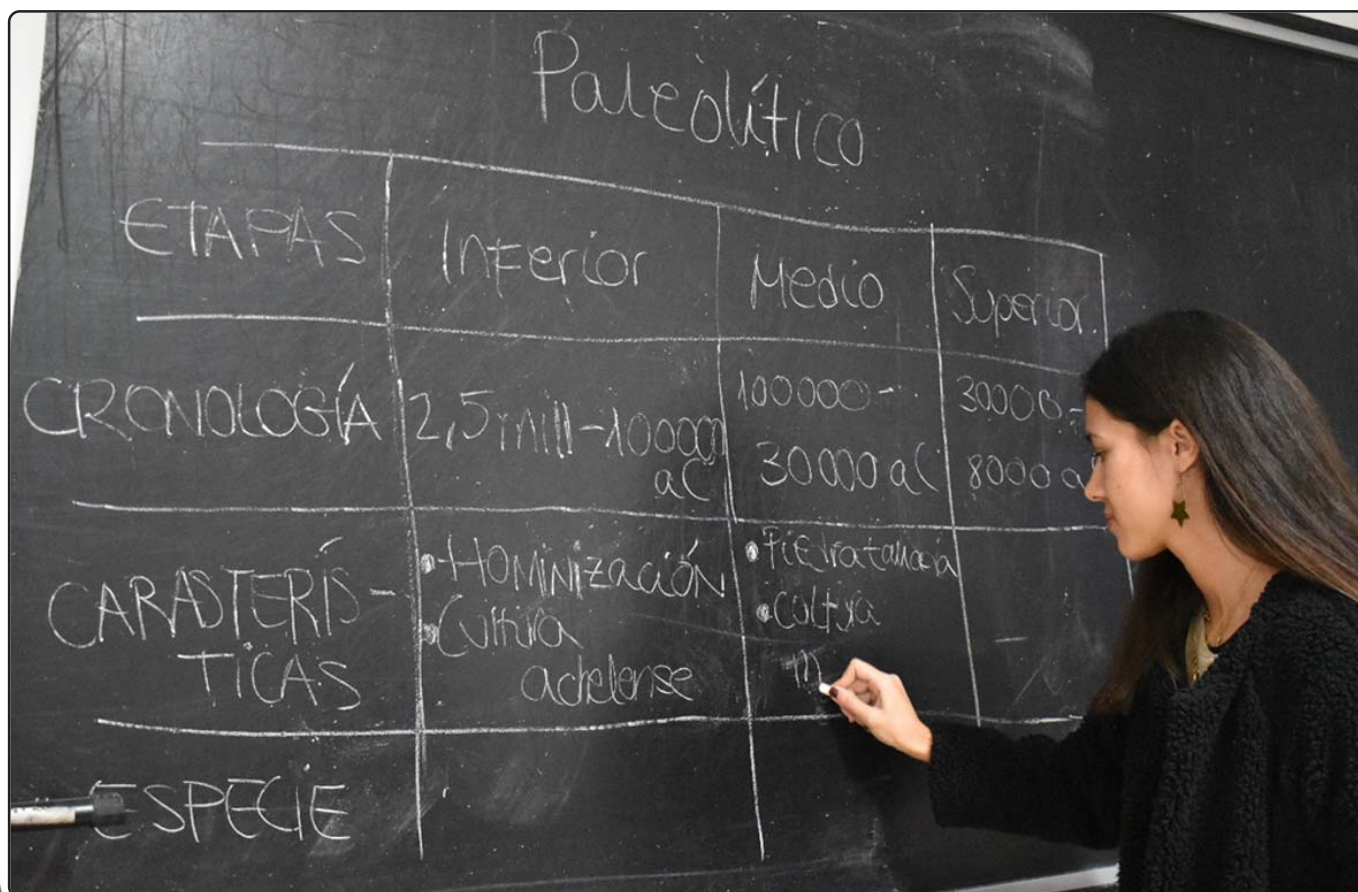 Paleolítico
ETAPAS Inferior Medio Superior.
CRONOLOGÍA 2,5 mill-100000 aC 100000- 30000 aC 30000- 8000 a
CARASTERÍS-
TICAS
•Hominización
•Cultura
achelense
•Piedra tallada
•Cultura
m
ESPECIE